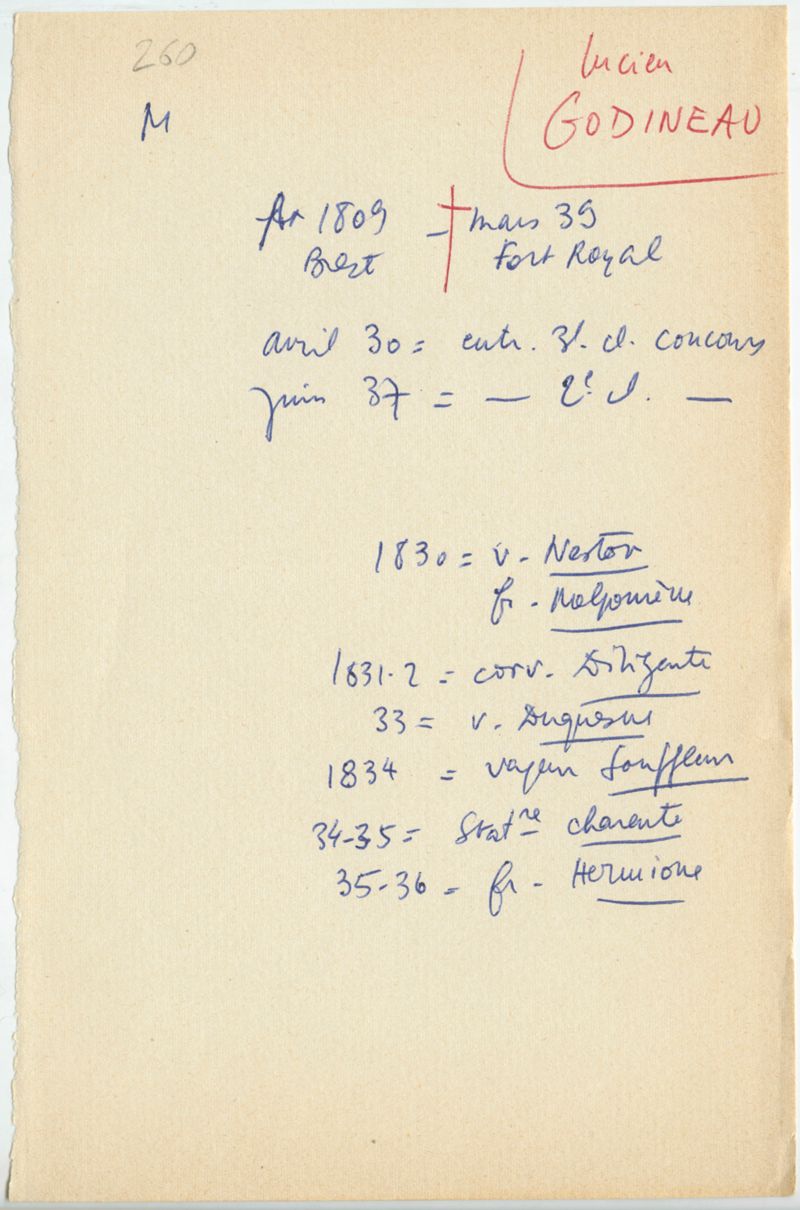 260
Lucien
GODINEAU
M
1809 – † mars 39
Brest Fort Royal
avril 30 = entr. 3e. cl. concours
juin 37 = — 2e cl. —
1830 = v. Nestor
fr. Melpomène
1831-2 = corv. Diligente
33 = v. Duquesne
1834 = vapeur Souffleur
34-35 = Statre Charente
35-36 = fr. Hermione